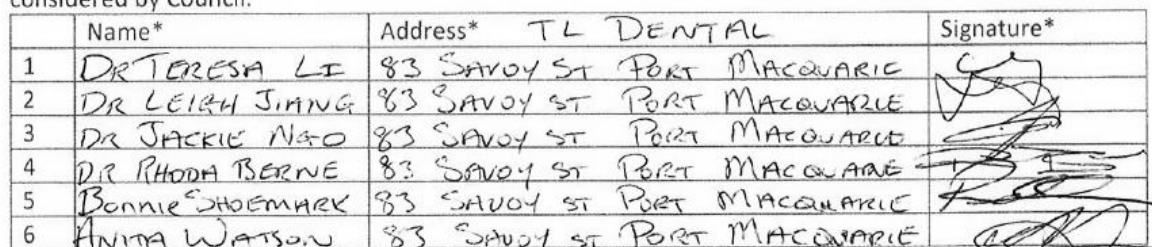 considered by Council.
Name* Address* TL DENTAL Signature*
1 DR TERESA LI 83 SAVOY ST PORT MACQUARIE
2 DR LEIGH JIANG 83 SAVOY ST PORT MACQUARIE
3 DR JACKIE NGO 83 SAVOY ST PORT MACQUARIE
4 DR RHODA BERNE 83 SAVOY ST PORT MACQUARIE
5 BONNIE SHOEMARK 83 SAVOY ST PORT MACQUARIE
6 ANITA WATSON 83 SAVOY ST PORT MACQUARIE